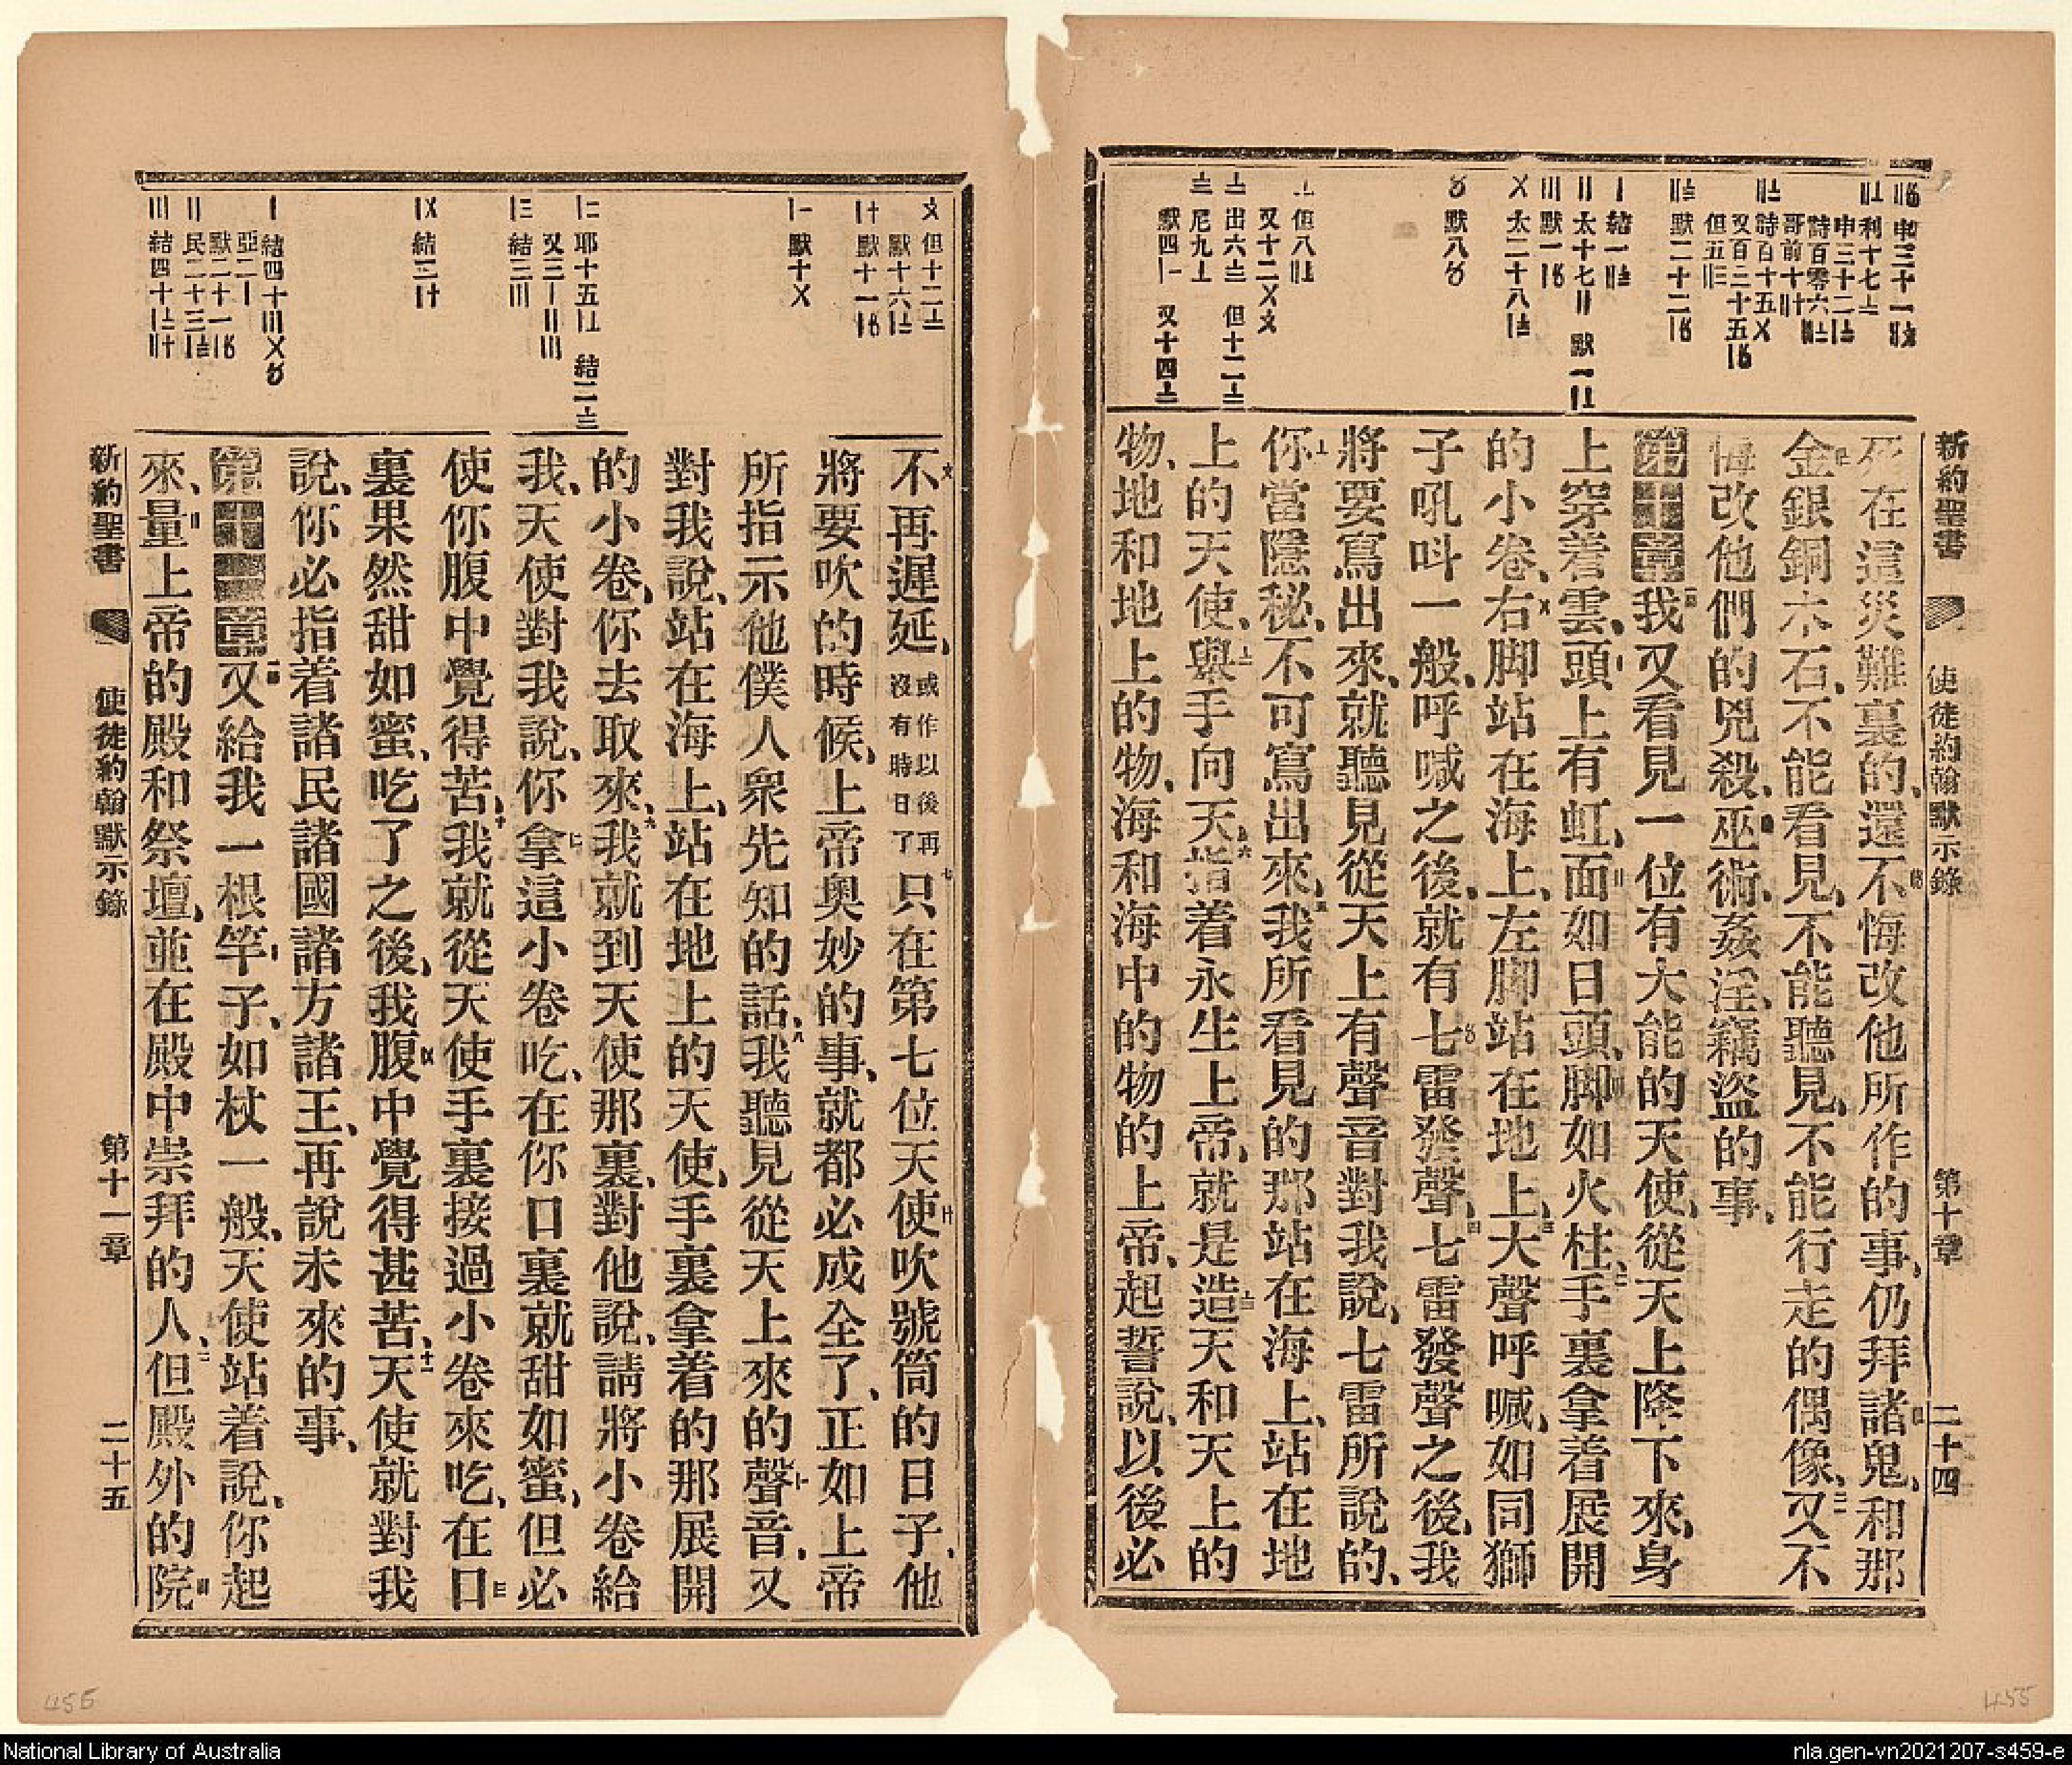 新約聖書
使徒約翰默示錄
第十章
二十四
死在這災難裏的、還不悔改他所作的事、仍拜諸鬼、和那
金銀銅木石、不能看見、不能聽見、不能行走的偶像、又不
悔改他們的兇殺、巫術、姦淫、竊盜的事、
第十章我又看見一位有大能的天使、從天上降下來、身
上穿着雲、頭上有虹、面如日頭、脚如火柱、手裏拿着展開
的小卷、右脚站在海上、左脚站在地上、大聲呼喊、如同獅
子吼呌一般、呼喊之後、就有七雷發聲、七雷發聲之後、我
將要寫出來、就聽見從天上有聲音對我說、七雷所說的、
你當隱秘、不可寫出來、我所看見的那站在海上、站在地
上的天使、舉手向天、指着永生上帝、就是造天和天上的
物、地和地上的物、海和海中的物的上帝、起誓說、以後必
不再遲延、或作以後再沒有時日了只在第七位天使吹號筒的日子、他
將要吹的時候、上帝奧妙的事、就都必成全了、正如上帝
所指示他僕人衆先知的話、我聽見從天上來的聲音、又
對我說、站在海上、站在地上的天使、手裏拿着的那展開
的小卷、你去取來、我就到天使那裏、對他說、請將小卷給
我、天使對我說、你拿這小卷吃、在你口裏就甜如蜜、但必
使你腹中覺得苦、我就從天使手裏接過小卷來吃、在口
裏果然甜如蜜、吃了之後、我腹中覺得甚苦、天使就對我
說、你必指着諸民諸國諸方諸王、再說未來的事、
第十一章又給我一根竿子、如杖一般、天使站着說、你起
來、量上帝的殿和祭壇、並在殿中崇拜的人、但殿外的院
新約聖書
使徒約翰默示錄
第十一章
二十五
456
455
National Library of Australia
nla.gen-vn2021207-s459-e